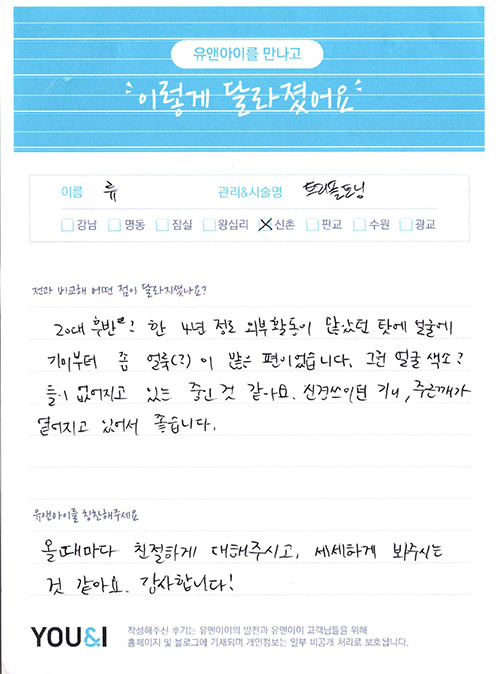 유앤아이를 만나고
이렇게 달라졌어요
이름 류 관리&시술명 트리플토닝
강남 명동 잠실 왕십리 신촌 판교 수원 광교
전과 비교해 어떤 점이 달라지셨나요?
20대 후반? 한 4년 정도 외부활동이 많았던 탓에 얼굴에
기미부터 좀 얼룩(?)이 많은 편이었습니다. 그런 얼굴 색소?
들이 없어지고 있는 중인 것 같아요. 신경쓰이던 기미, 주근깨가
옅어지고 있어서 좋습니다.
유앤아이를 칭찬해주세요
올때마다 친절하게 대해주시고, 세세하게 봐주시는
것 같아요. 감사합니다!
YOU&I 작성해주신 후기는 유앤아이의 발전과 유앤아이 고객님들을 위해
홈페이지 및 블로그에 기재되며 개인정보는 일부 비공개 처리로 보호됩니다.